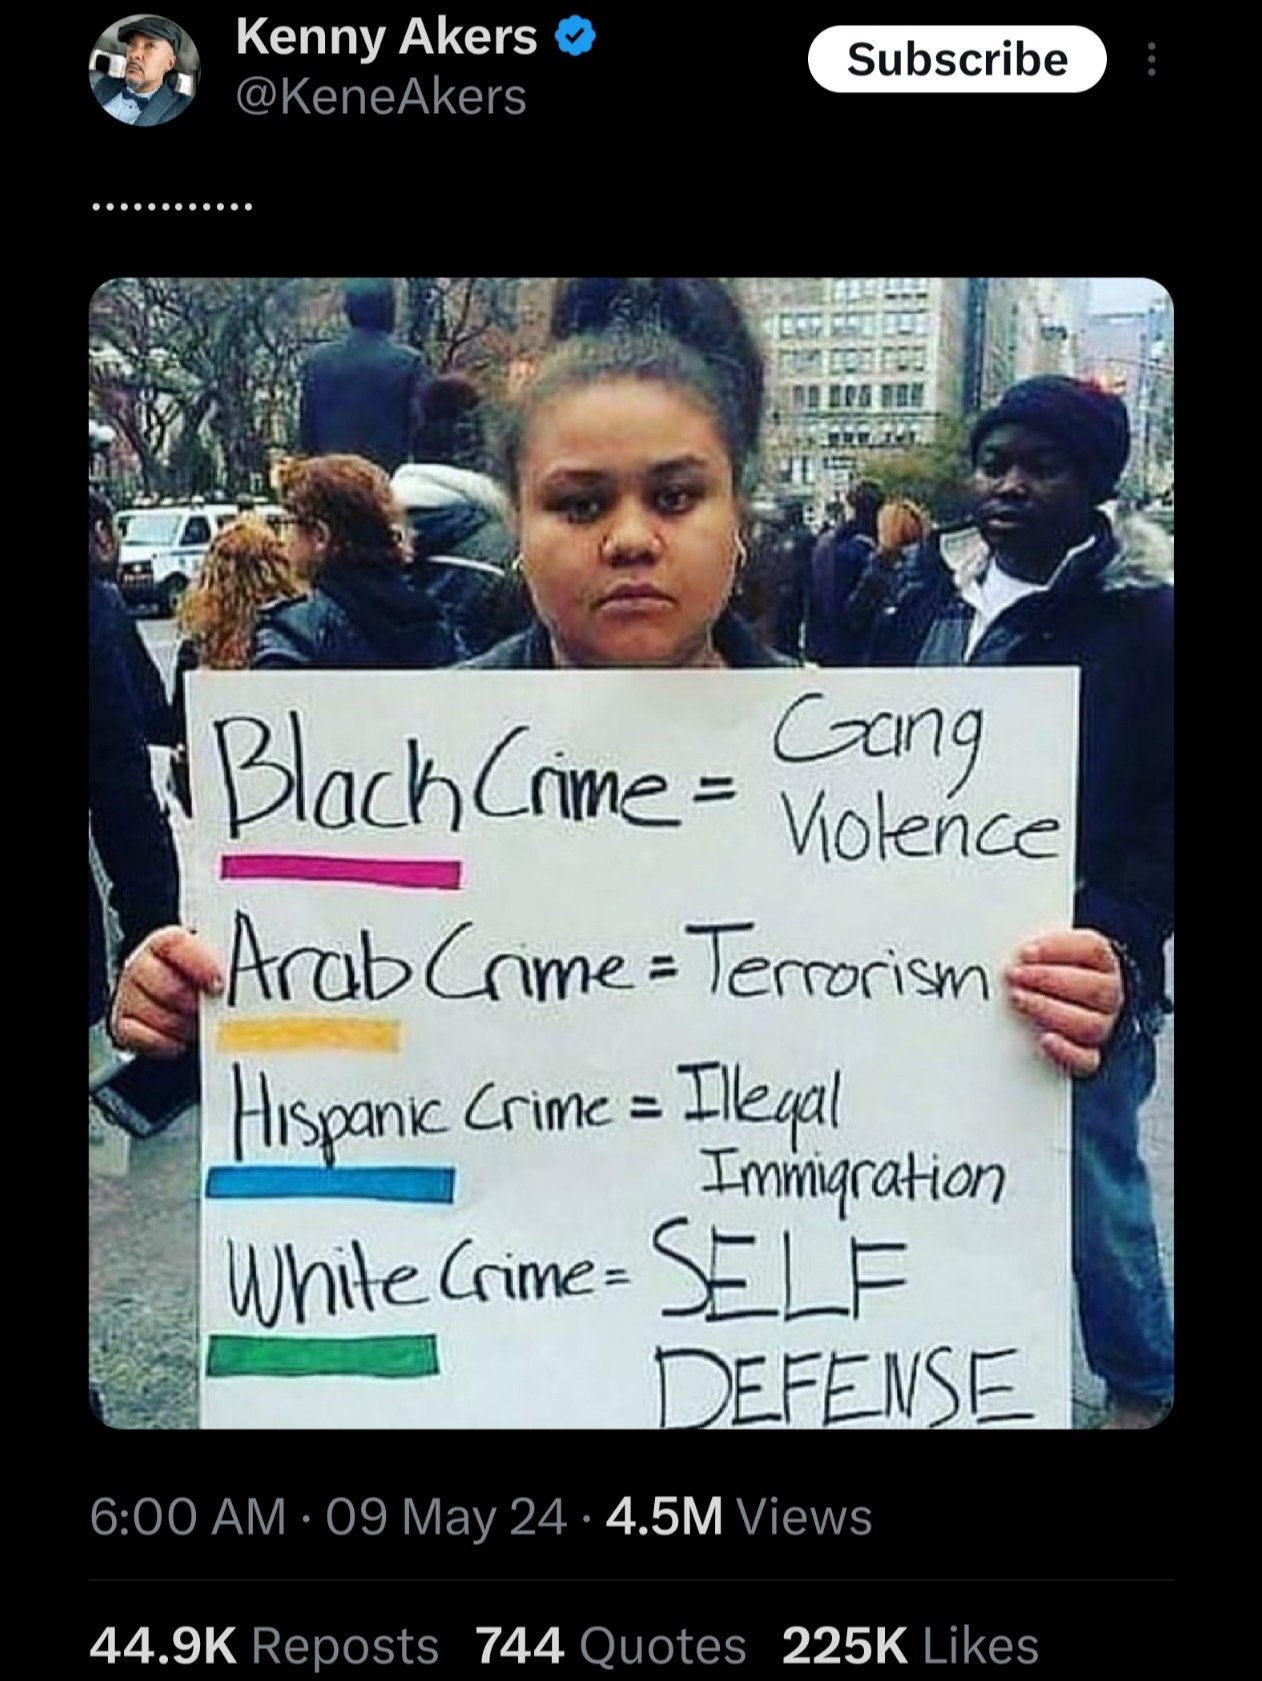 Kenny Akers
Subscribe
@KeneAkers
............
Black Crime = Gang
Violence
Arab Crime = Terrorism
Hispanic Crime = Illegal
Immigration
White Crime = SELF
DEFENSE
6:00 AM · 09 May 24 · 4.5M Views
44.9K Reposts 744 Quotes 225K Likes